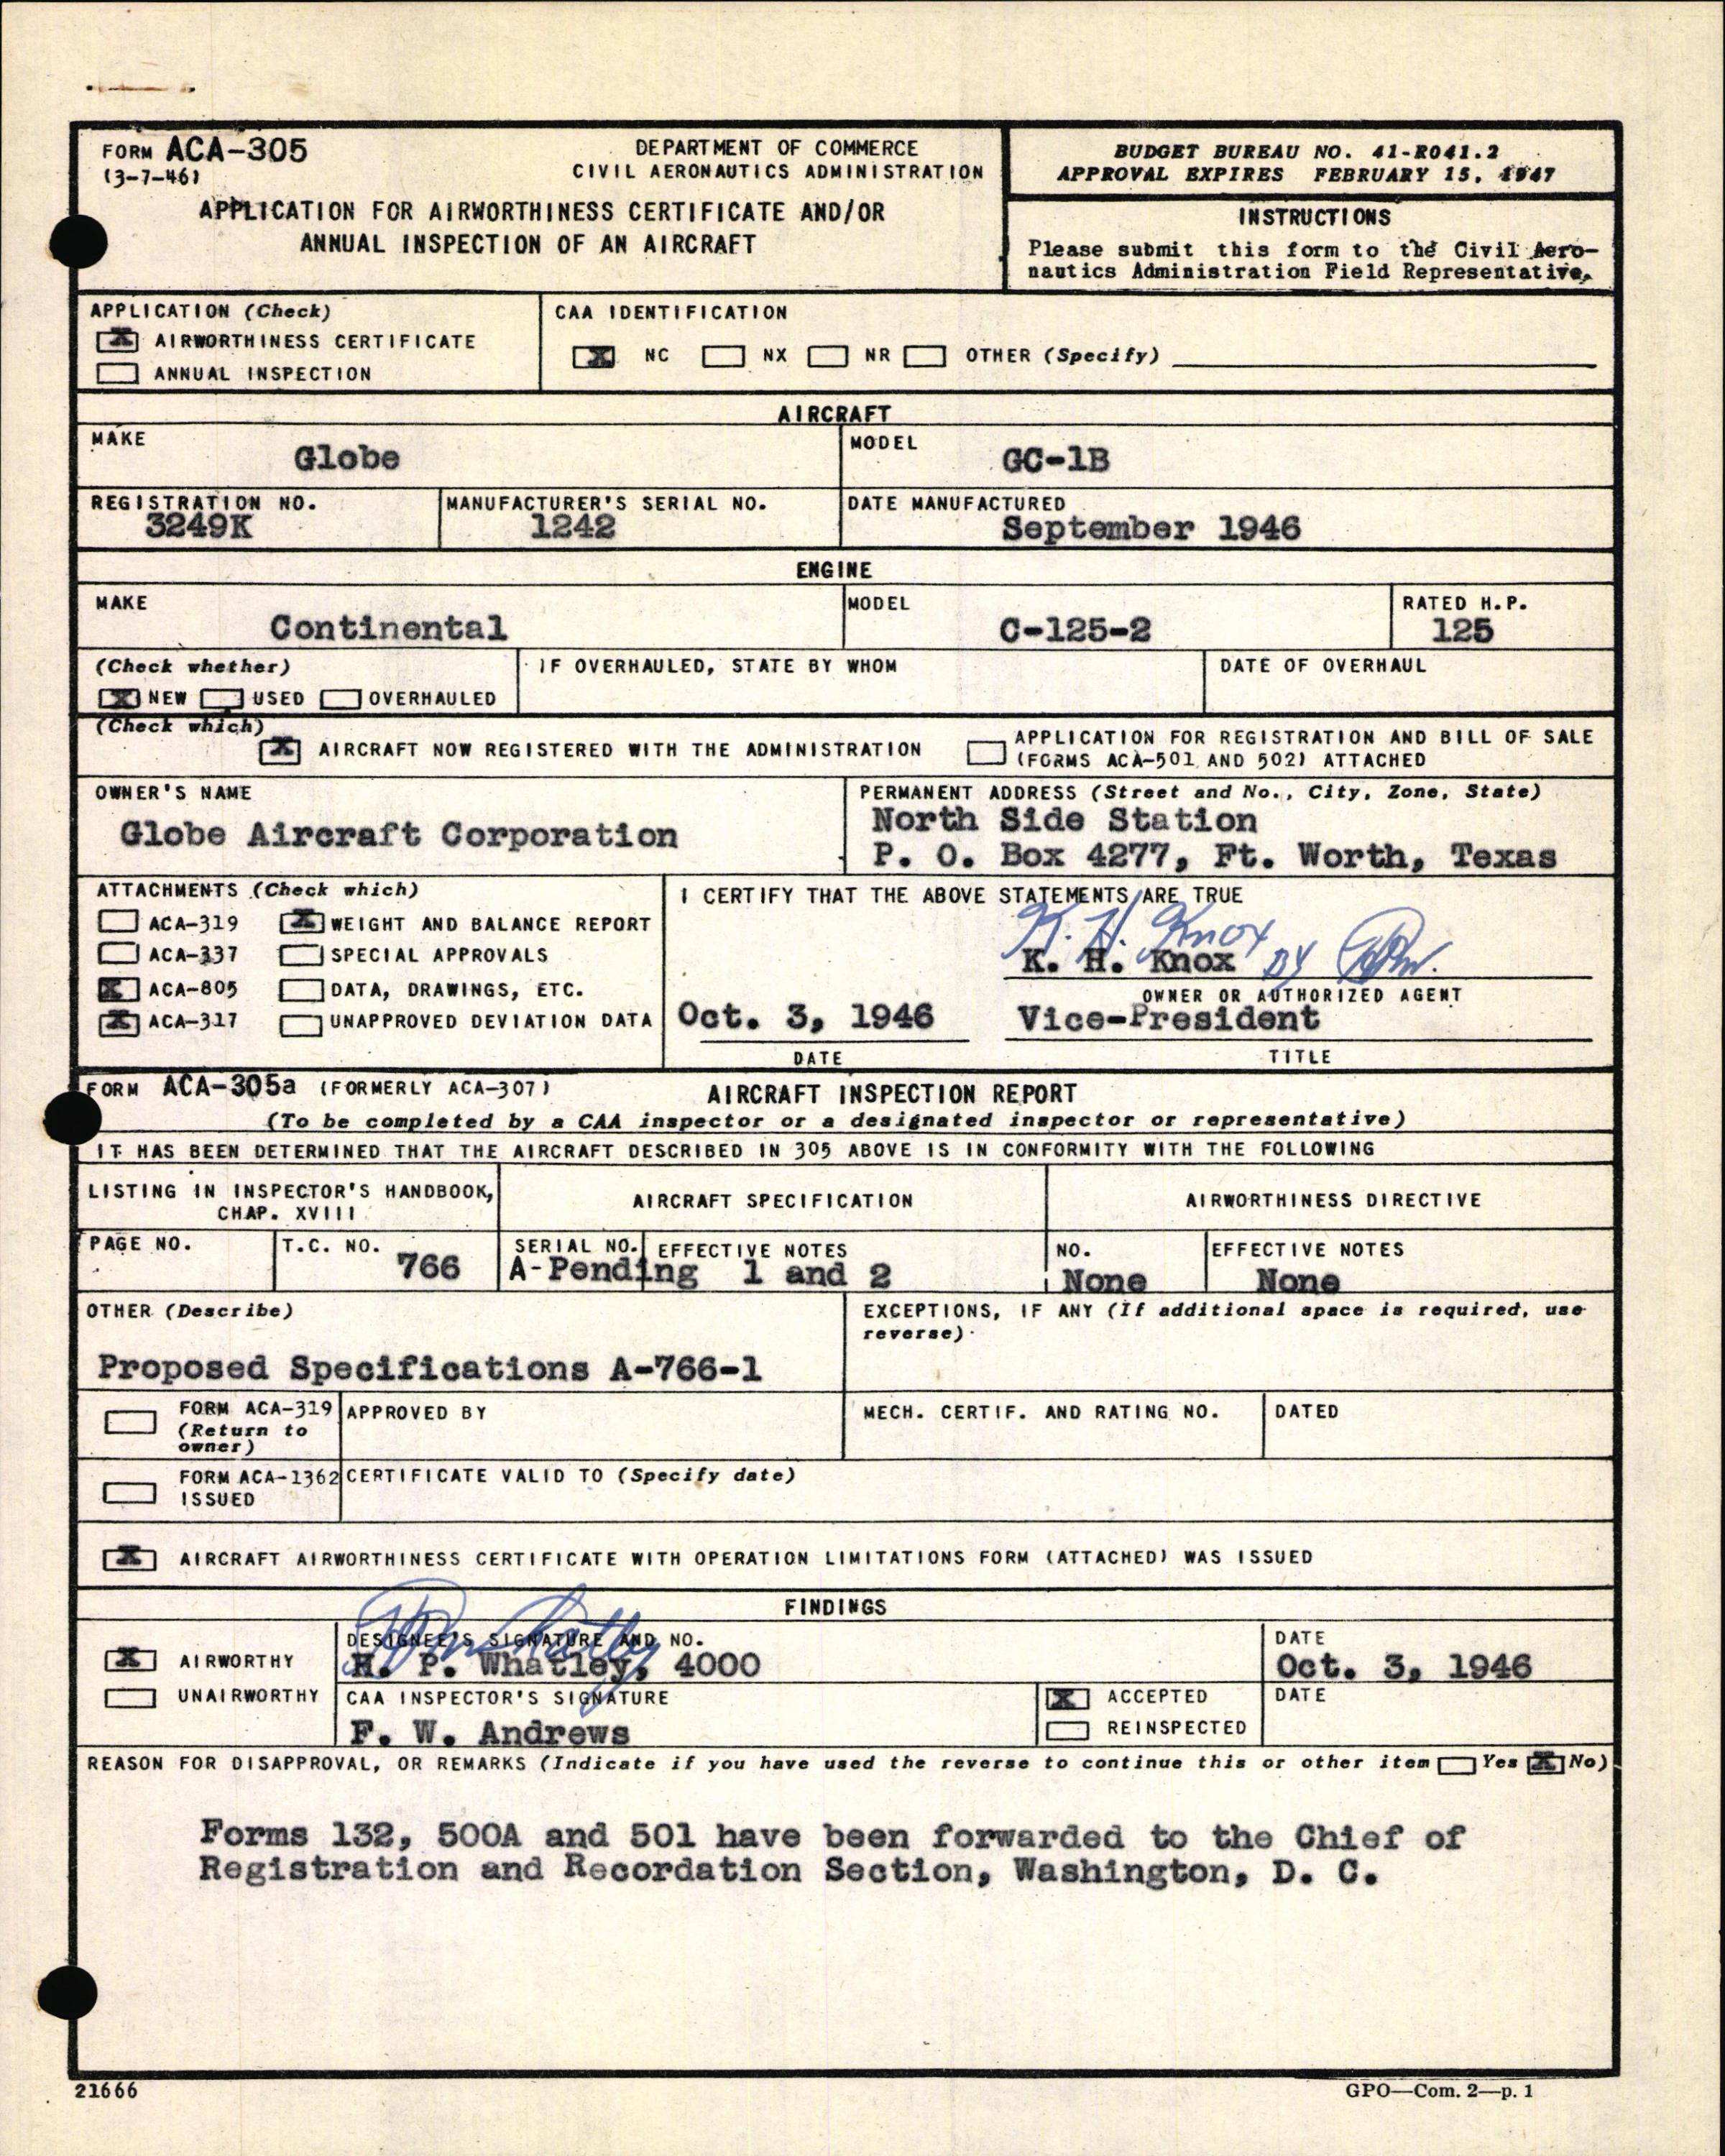 FORM ACA-305
(3-7-46)
DEPARTMENT OF COMMERCE
CIVIL AERONAUTICS ADMINISTRATION
APPLICATION FOR AIRWORTHINESS CERTIFICATE AND/OR
ANNUAL INSPECTION OF AN AIRCRAFT
BUDGET BUREAU NO. 41-R041.2
APPROVAL EXPIRES FEBRUARY 15, 1947
INSTRUCTIONS
Please submit this form to the Civil Aero-
nautics Administration Field Representative.
APPLICATION (Check)
X AIRWORTHINESS CERTIFICATE
ANNUAL INSPECTION
CAA IDENTIFICATION
X NC NX NR OTHER (Specify)
AIRCRAFT
MAKE
Globe
MODEL
GC-1B
REGISTRATION NO.
3249K
MANUFACTURER'S SERIAL NO.
1242
DATE MANUFACTURED
September 1946
ENGINE
MAKE
Continental
MODEL
C-125-2
RATED H.P.
125
(Check whether)
X NEW USED OVERHAULED
IF OVERHAULED, STATE BY WHOM
DATE OF OVERHAUL
(Check which)
X AIRCRAFT NOW REGISTERED WITH THE ADMINISTRATION
APPLICATION FOR REGISTRATION AND BILL OF SALE
(FORMS ACA-501 AND 502) ATTACHED
OWNER'S NAME
Globe Aircraft Corporation
PERMANENT ADDRESS (Street and No., City, Zone, State)
North Side Station
P. O. Box 4277, Ft. Worth, Texas
ATTACHMENTS (Check which)
ACA-319 X WEIGHT AND BALANCE REPORT
ACA-337 SPECIAL APPROVALS
X ACA-805 DATA, DRAWINGS, ETC.
X ACA-317 UNAPPROVED DEVIATION DATA
I CERTIFY THAT THE ABOVE STATEMENTS ARE TRUE
K. H. Knox By
K. H. Knox
OWNER OR AUTHORIZED AGENT
Oct. 3, 1946
DATE
Vice-President
TITLE
FORM ACA-305a (FORMERLY ACA-307)
AIRCRAFT INSPECTION REPORT
(To be completed by a CAA inspector or a designated inspector or representative)
IT HAS BEEN DETERMINED THAT THE AIRCRAFT DESCRIBED IN 305 ABOVE IS IN CONFORMITY WITH THE FOLLOWING
LISTING IN INSPECTOR'S HANDBOOK,
CHAP. XVIII
AIRCRAFT SPECIFICATION
AIRWORTHINESS DIRECTIVE
PAGE NO.
T.C. NO.
766
SERIAL NO.
A-Pending
EFFECTIVE NOTES
1 and 2
NO.
None
EFFECTIVE NOTES
None
OTHER (Describe)
Proposed Specifications A-766-1
EXCEPTIONS, IF ANY (If additional space is required, use
reverse)
FORM ACA-319
(Return to
owner)
APPROVED BY
MECH. CERTIF. AND RATING NO.
DATED
FORM ACA-1362
ISSUED
CERTIFICATE VALID TO (Specify date)
X AIRCRAFT AIRWORTHINESS CERTIFICATE WITH OPERATION LIMITATIONS FORM (ATTACHED) WAS ISSUED
FINDINGS
X AIRWORTHY
UNAIRWORTHY
DESIGNEE'S SIGNATURE AND NO.
H. P. Whatley, 4000
DATE
Oct. 3, 1946
CAA INSPECTOR'S SIGNATURE
F. W. Andrews
X ACCEPTED
REINSPECTED
DATE
REASON FOR DISAPPROVAL, OR REMARKS (Indicate if you have used the reverse to continue this or other item Yes X No)
Forms 132, 500A and 501 have been forwarded to the Chief of
Registration and Recordation Section, Washington, D. C.
21666
GPO—Com. 2—p. 1